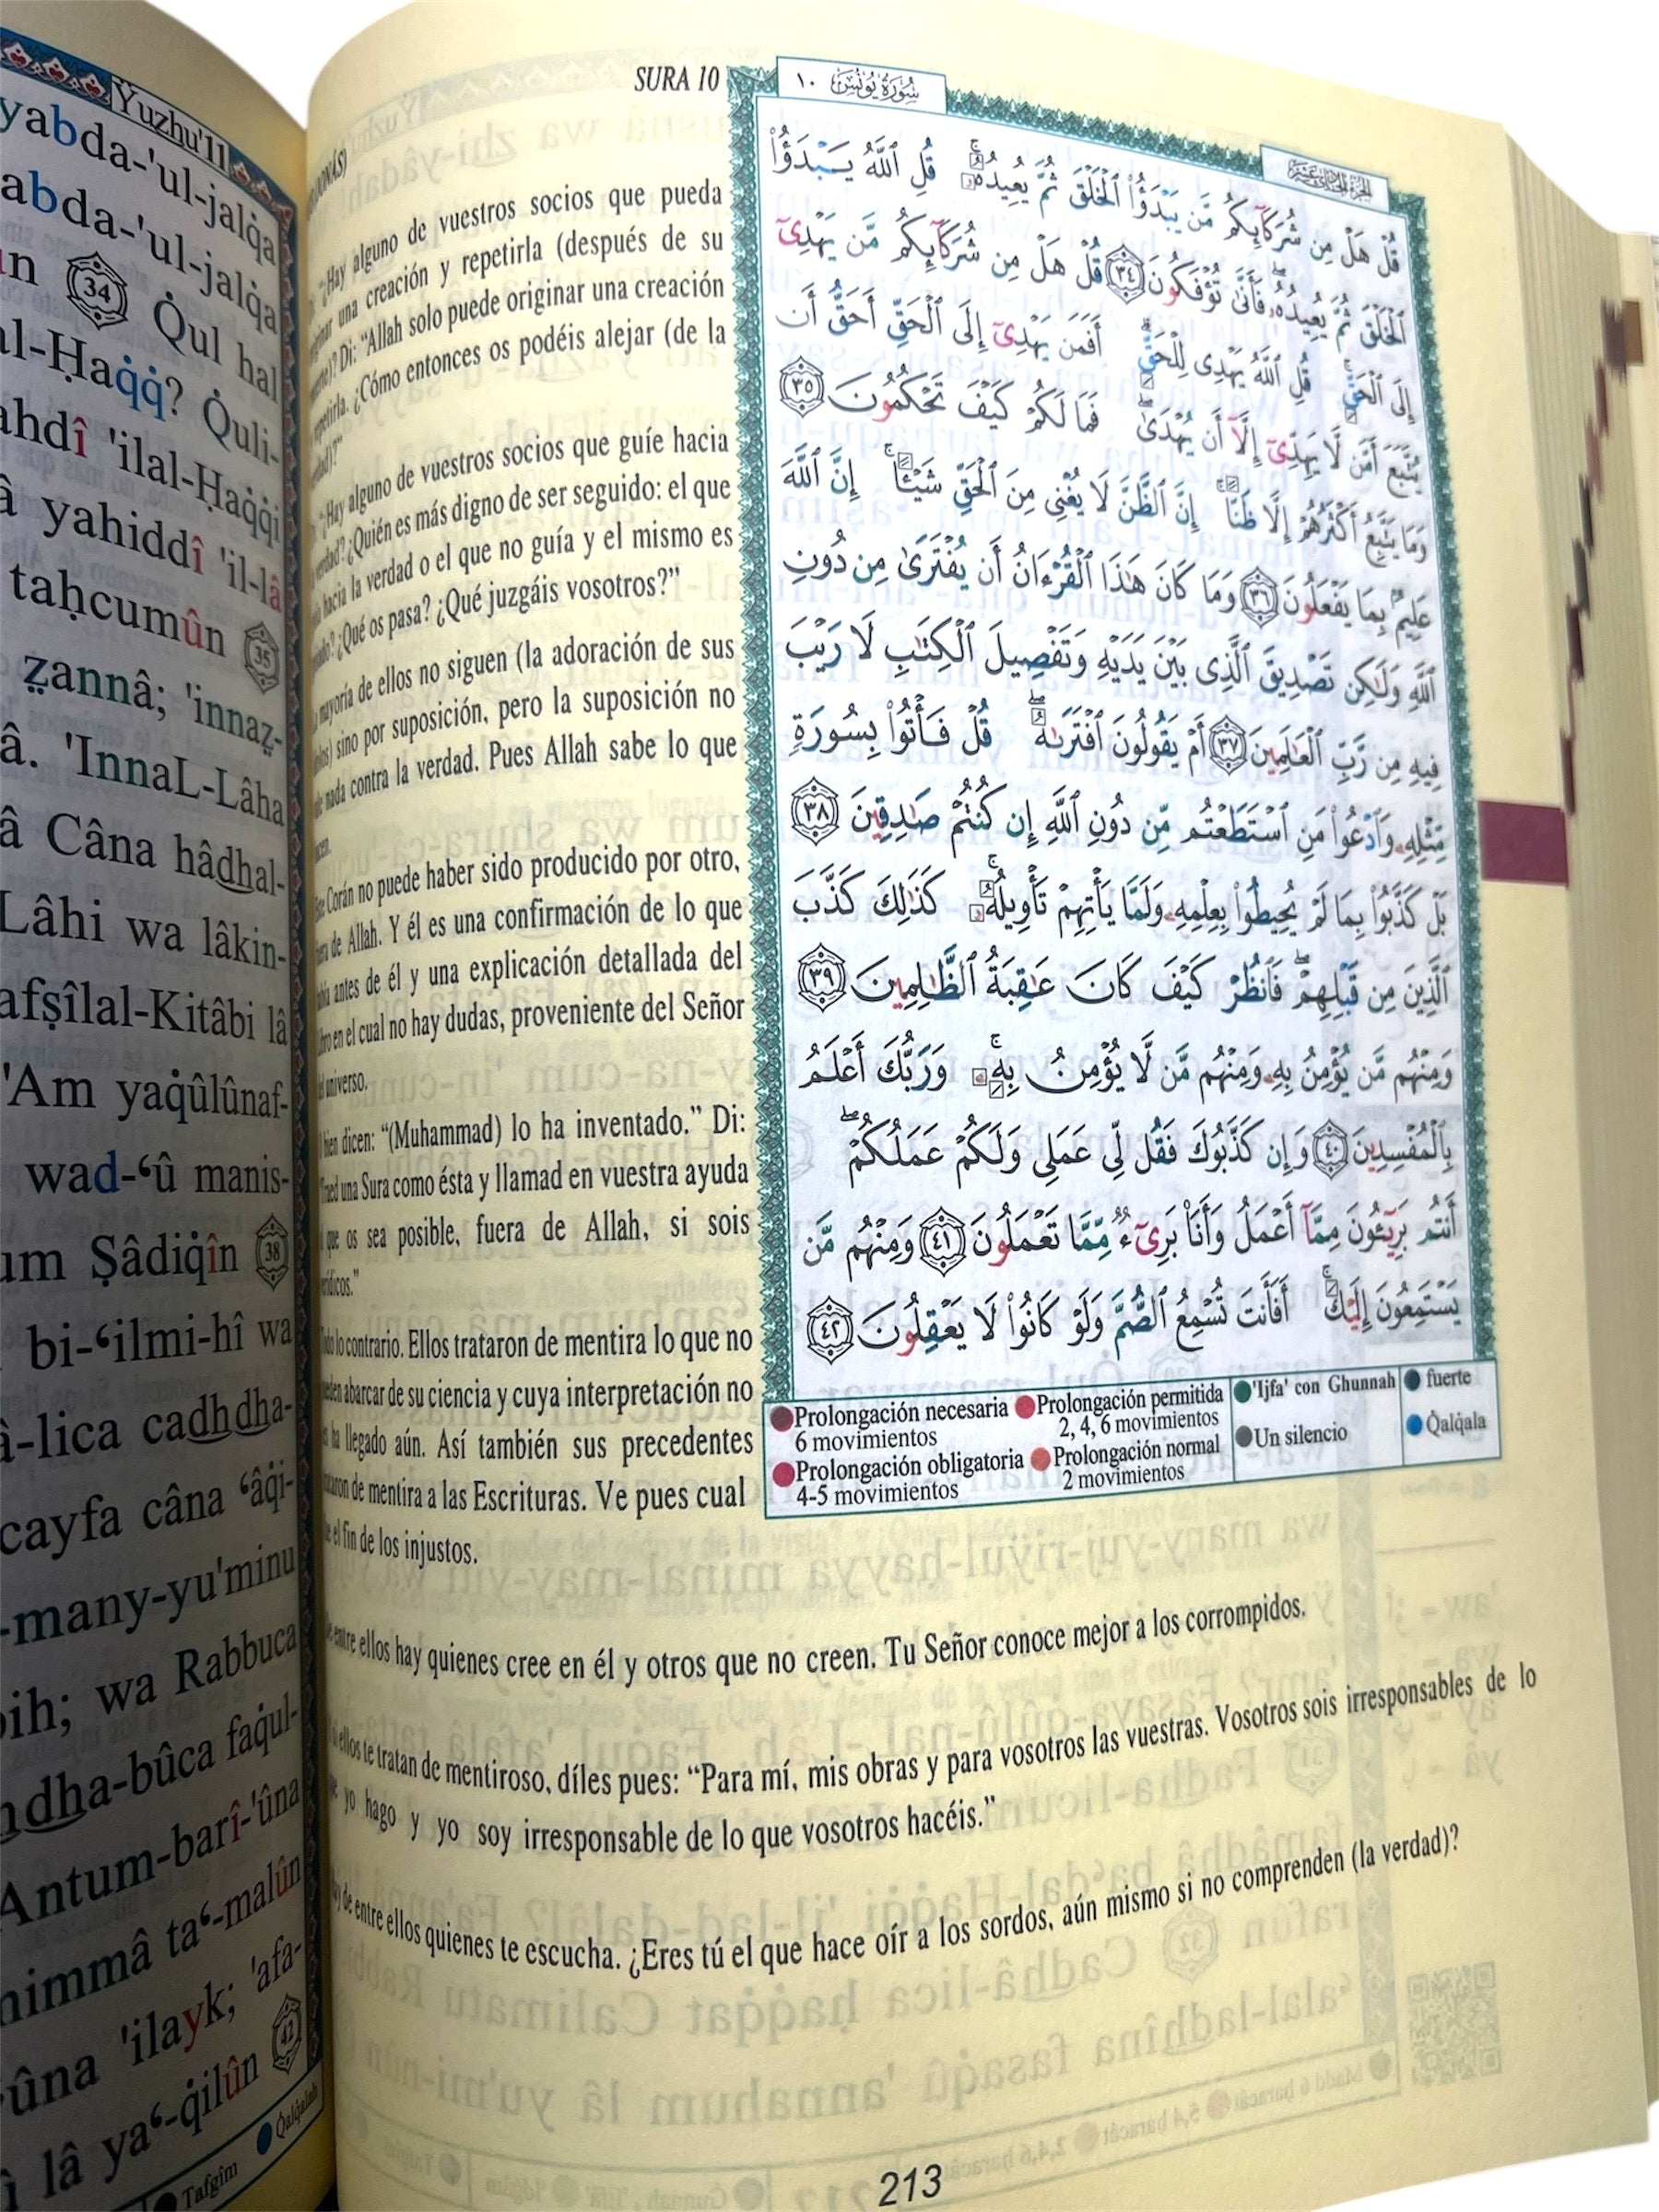 Yuzhu'11
yabda-'ul-jalq̇a
abda-'ul-jalq̇a
34 Q̇ul hal
al-Ḥaq̇q̇? Q̇uli-
ahdî 'ilal-Ḥaq̇q̇i
yahiddî 'il-lâ
taḥcumûn 35
ẓannâ; 'innaẓ-
'InnaL-Lâha
Câna hâdhal-
Lâhi wa lâkin-
afṣîlal-Kitâbi lâ
'Am yaq̇ûlûnaf-
wad-‘û manis-
Ṣâdiq̇în 38
bi-‘ilmi-hî wa
â-lica cadhdha-
cayfa câna ‘âq̇i-
-many-yu'minu
bih; wa Rabbuca
dha-bûca faq̇ul-
Antum-barî-'ûna
mimmâ ta‘-malûn
'ilayk; 'afa-
lâ ya‘-q̇ilûn 42
Tafgîm Q̇alq̇alah
SURA 10
¿Hay alguno de vuestros socios que pueda
una creación y repetirla (después de su
Di: “Allah solo puede originar una creación
repetirla. ¿Cómo entonces os podéis alejar (de la
“¿Hay alguno de vuestros socios que guíe hacia
verdad? ¿Quién es más digno de ser seguido: el que
hacia la verdad o el que no guía y el mismo es
¿Qué os pasa? ¿Qué juzgáis vosotros?”
mayoría de ellos no siguen (la adoración de sus
sino por suposición, pero la suposición no
nada contra la verdad. Pues Allah sabe lo que
Corán no puede haber sido producido por otro,
de Allah. Y él es una confirmación de lo que
antes de él y una explicación detallada del
en el cual no hay dudas, proveniente del Señor
universo.
bien dicen: “(Muhammad) lo ha inventado.” Di:
una Sura como ésta y llamad en vuestra ayuda
que os sea posible, fuera de Allah, si sois
lo contrario. Ellos trataron de mentira lo que no
abarcar de su ciencia y cuya interpretación no
ha llegado aún. Así también sus precedentes
de mentira a las Escrituras. Ve pues cual
el fin de los injustos.
entre ellos hay quienes cree en él y otros que no creen. Tu Señor conoce mejor a los corrompidos.
ellos te tratan de mentiroso, díles pues: “Para mí, mis obras y para vosotros las vuestras. Vosotros sois irresponsables de lo
yo hago y yo soy irresponsable de lo que vosotros hacéis.”
de entre ellos quienes te escucha. ¿Eres tú el que hace oír a los sordos, aún mismo si no comprenden (la verdad)?
سُورَةُ يُونُسَ ١٠
الجزء الحادي عشر
قُلْ هَلْ مِن شُرَكَآئِكُم مَّن يَبْدَؤُا۟ ٱلْخَلْقَ ثُمَّ يُعِيدُهُۥ ۚ قُلِ ٱللَّهُ يَبْدَؤُا۟
ٱلْخَلْقَ ثُمَّ يُعِيدُهُۥ ۖ فَأَنَّىٰ تُؤْفَكُونَ ٣٤ قُلْ هَلْ مِن شُرَكَآئِكُم مَّن يَهْدِىٓ
إِلَى ٱلْحَقِّ ۚ قُلِ ٱللَّهُ يَهْدِى لِلْحَقِّ ۗ أَفَمَن يَهْدِىٓ إِلَى ٱلْحَقِّ أَحَقُّ أَن
يُتَّبَعَ أَمَّن لَّا يَهِدِّىٓ إِلَّآ أَن يُهْدَىٰ ۖ فَمَا لَكُمْ كَيْفَ تَحْكُمُونَ ٣٥
وَمَا يَتَّبِعُ أَكْثَرُهُمْ إِلَّا ظَنًّا ۚ إِنَّ ٱلظَّنَّ لَا يُغْنِى مِنَ ٱلْحَقِّ شَيْـًٔا ۚ إِنَّ ٱللَّهَ
عَلِيمٌۢ بِمَا يَفْعَلُونَ ٣٦ وَمَا كَانَ هَٰذَا ٱلْقُرْءَانُ أَن يُفْتَرَىٰ مِن دُونِ
ٱللَّهِ وَلَٰكِن تَصْدِيقَ ٱلَّذِى بَيْنَ يَدَيْهِ وَتَفْصِيلَ ٱلْكِتَٰبِ لَا رَيْبَ
فِيهِ مِن رَّبِّ ٱلْعَٰلَمِينَ ٣٧ أَمْ يَقُولُونَ ٱفْتَرَىٰهُ ۖ قُلْ فَأْتُوا۟ بِسُورَةٍ
مِّثْلِهِۦ وَٱدْعُوا۟ مَنِ ٱسْتَطَعْتُم مِّن دُونِ ٱللَّهِ إِن كُنتُمْ صَٰدِقِينَ ٣٨
بَلْ كَذَّبُوا۟ بِمَا لَمْ يُحِيطُوا۟ بِعِلْمِهِۦ وَلَمَّا يَأْتِهِمْ تَأْوِيلُهُۥ ۚ كَذَٰلِكَ كَذَّبَ
ٱلَّذِينَ مِن قَبْلِهِمْ ۖ فَٱنظُرْ كَيْفَ كَانَ عَٰقِبَةُ ٱلظَّٰلِمِينَ ٣٩
وَمِنْهُم مَّن يُؤْمِنُ بِهِۦ وَمِنْهُم مَّن لَّا يُؤْمِنُ بِهِۦ ۚ وَرَبُّكَ أَعْلَمُ
بِٱلْمُفْسِدِينَ ٤٠ وَإِن كَذَّبُوكَ فَقُل لِّى عَمَلِى وَلَكُمْ عَمَلُكُمْ ۖ
أَنتُم بَرِيٓـُٔونَ مِمَّآ أَعْمَلُ وَأَنَا۠ بَرِىٓءٌ مِّمَّا تَعْمَلُونَ ٤١ وَمِنْهُم مَّن
يَسْتَمِعُونَ إِلَيْكَ ۚ أَفَأَنتَ تُسْمِعُ ٱلصُّمَّ وَلَوْ كَانُوا۟ لَا يَعْقِلُونَ ٤٢
Prolongación necesaria 6 movimientos
Prolongación permitida 2, 4, 6 movimientos
Prolongación obligatoria 4-5 movimientos
Prolongación normal 2 movimientos
'Ijfa' con Ghunnah
Un silencio
fuerte
Q̇alq̇ala
213